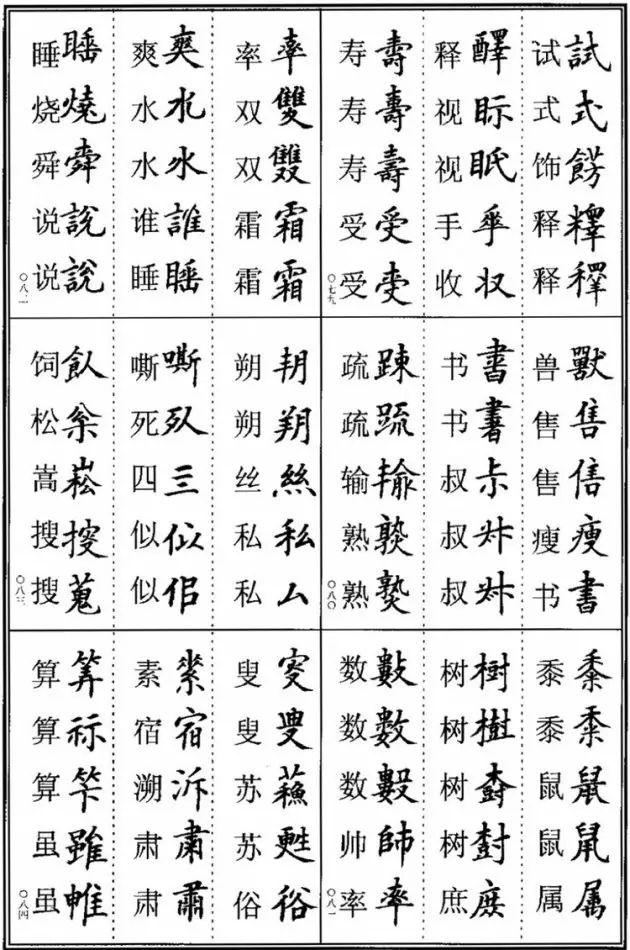 试試
式式
饰餝
释
释
释醳
视眎
视眂
手
收収
寿壽
寿壽
寿壽
受受
受
〇七九
兽獸
售售
售
瘦瘦
书書
书書
书書
叔尗
叔
叔
疏踈
疏䟽
输
熟
熟
〇八〇
黍黍
黍
鼠鼠
鼠
属属
树樹
树樹
树
树
庶庶
数數
数數
数
帅帥
率率
〇八一
率率
双雙
双
霜霜
霜霜
爽爽
水水
水水
谁誰
睡睡
睡睡
烧燒
舜舜
说説
说說
〇八二
朔
朔朔
丝絲
私私
私厶
嘶嘶
死
四
似似
似佀
饲飤
松枀
嵩崧
搜
搜蒐
〇八三
叟
叟
苏蘓
苏甦
俗俗
素
宿宿
溯泝
肃肅
肃
算筭
算祘
算
虽雖
虽
〇八四